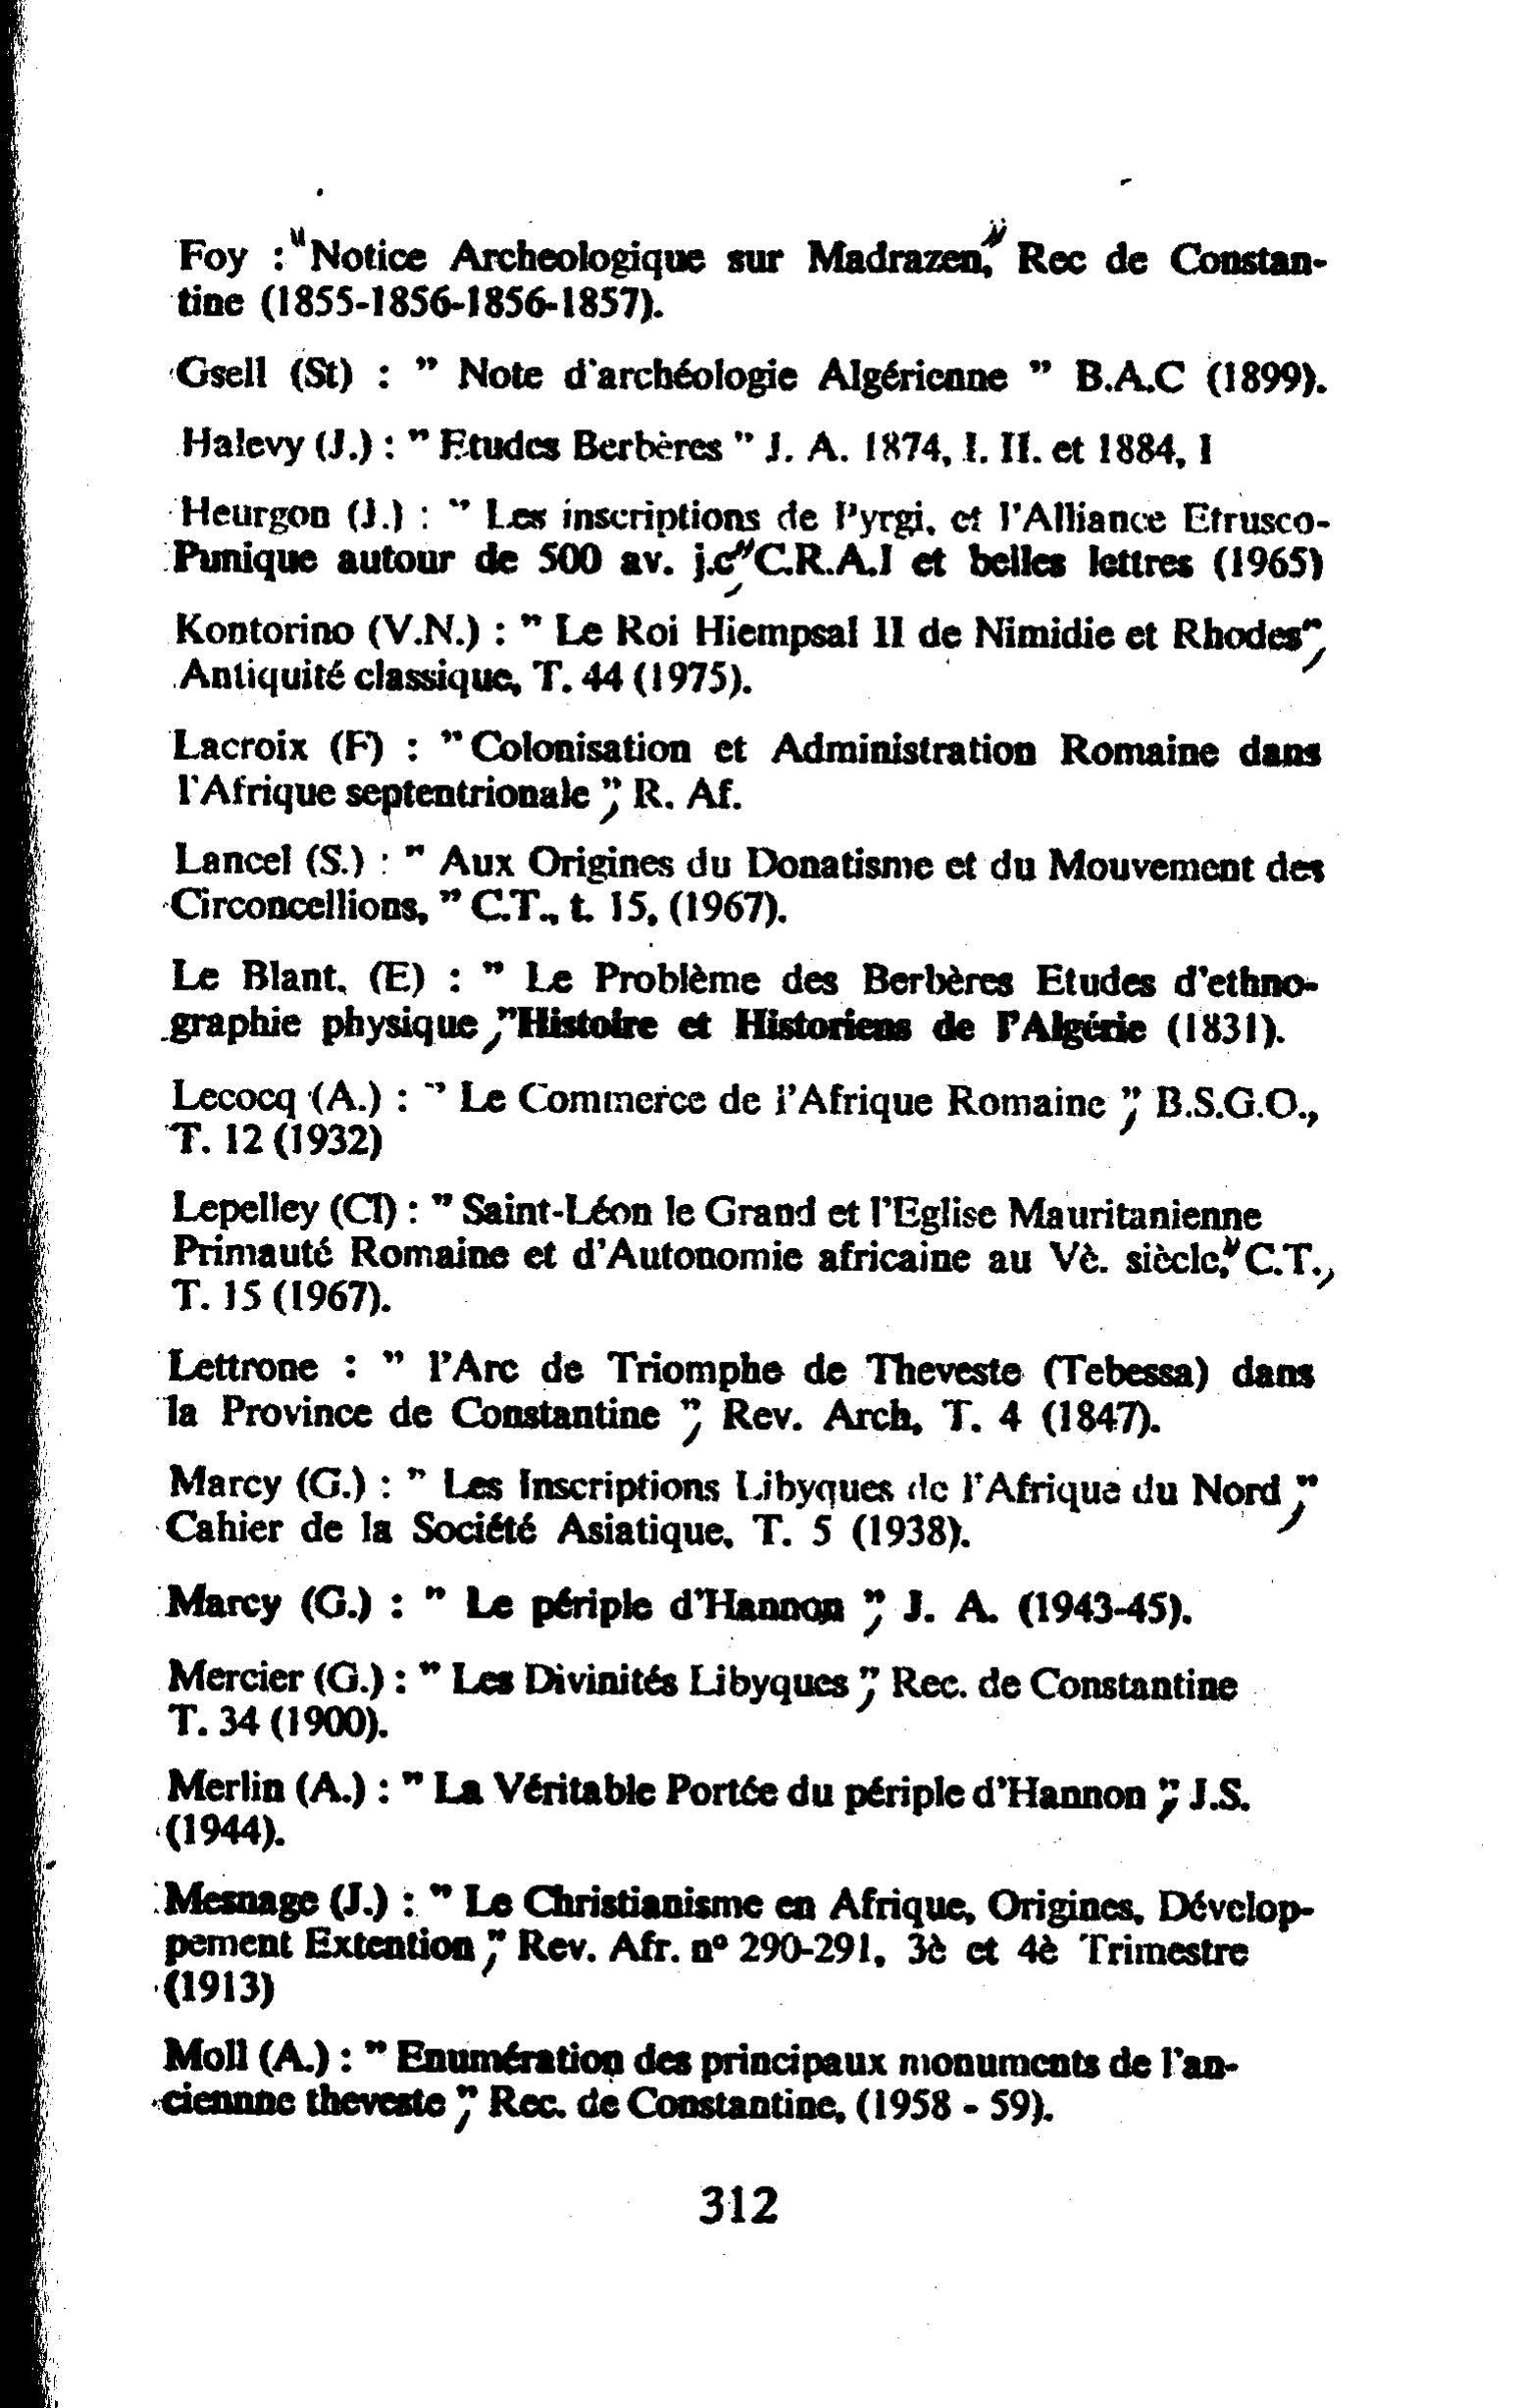 Foy : "Notice Archeologique sur Madrazen," Rec de Constan-
tine (1855-1856-1856-1857).
Gsell (St) : " Note d'archéologie Algérienne " B.A.C (1899).
Halevy (J.) : " Etudes Berbères " J. A. 1874, I. II. et 1884, I
Heurgon (J.) : " Les inscriptions de Pyrgi, et l'Alliance Etrusco-
Punique autour de 500 av. j.c", C.R.A.I et belles lettres (1965)
Kontorino (V.N.) : " Le Roi Hiempsal II de Nimidie et Rhodes",
Antiquité classique, T. 44 (1975).
Lacroix (F) : " Colonisation et Administration Romaine dans
l'Afrique septentrionale ", R. Af.
Lancel (S.) : " Aux Origines du Donatisme et du Mouvement des
Circoncellions, " C.T., t. 15, (1967).
Le Blant, (E) : " Le Problème des Berbères Etudes d'ethno-
graphie physique ,"Histoire et Historiens de l'Algérie (1831).
Lecocq (A.) : " Le Commerce de l'Afrique Romaine ", B.S.G.O.,
T. 12 (1932)
Lepelley (Cl) : " Saint-Léon le Grand et l'Eglise Mauritanienne
Primauté Romaine et d'Autonomie africaine au Vè. siècle," C.T.,
T. 15 (1967).
Lettrone : " l'Arc de Triomphe de Theveste (Tebessa) dans
la Province de Constantine ", Rev. Arch, T. 4 (1847).
Marcy (G.) : " Les Inscriptions Libyques de l'Afrique du Nord ,"
Cahier de la Société Asiatique, T. 5 (1938).
Marcy (G.) : " Le périple d'Hannon ", J. A. (1943-45).
Mercier (G.) : " Les Divinités Libyques ", Rec. de Constantine
T. 34 (1900).
Merlin (A.) : " La Véritable Portée du périple d'Hannon ", J.S.
(1944).
Mesnage (J.) : " Le Christianisme en Afrique, Origines, Dévelop-
pement Extention ," Rev. Afr. nº 290-291, 3è et 4è Trimestre
(1913)
Moll (A.) : " Enumération des principaux monuments de l'an-
ciennne theveste ", Rec. de Constantine, (1958 - 59).
312